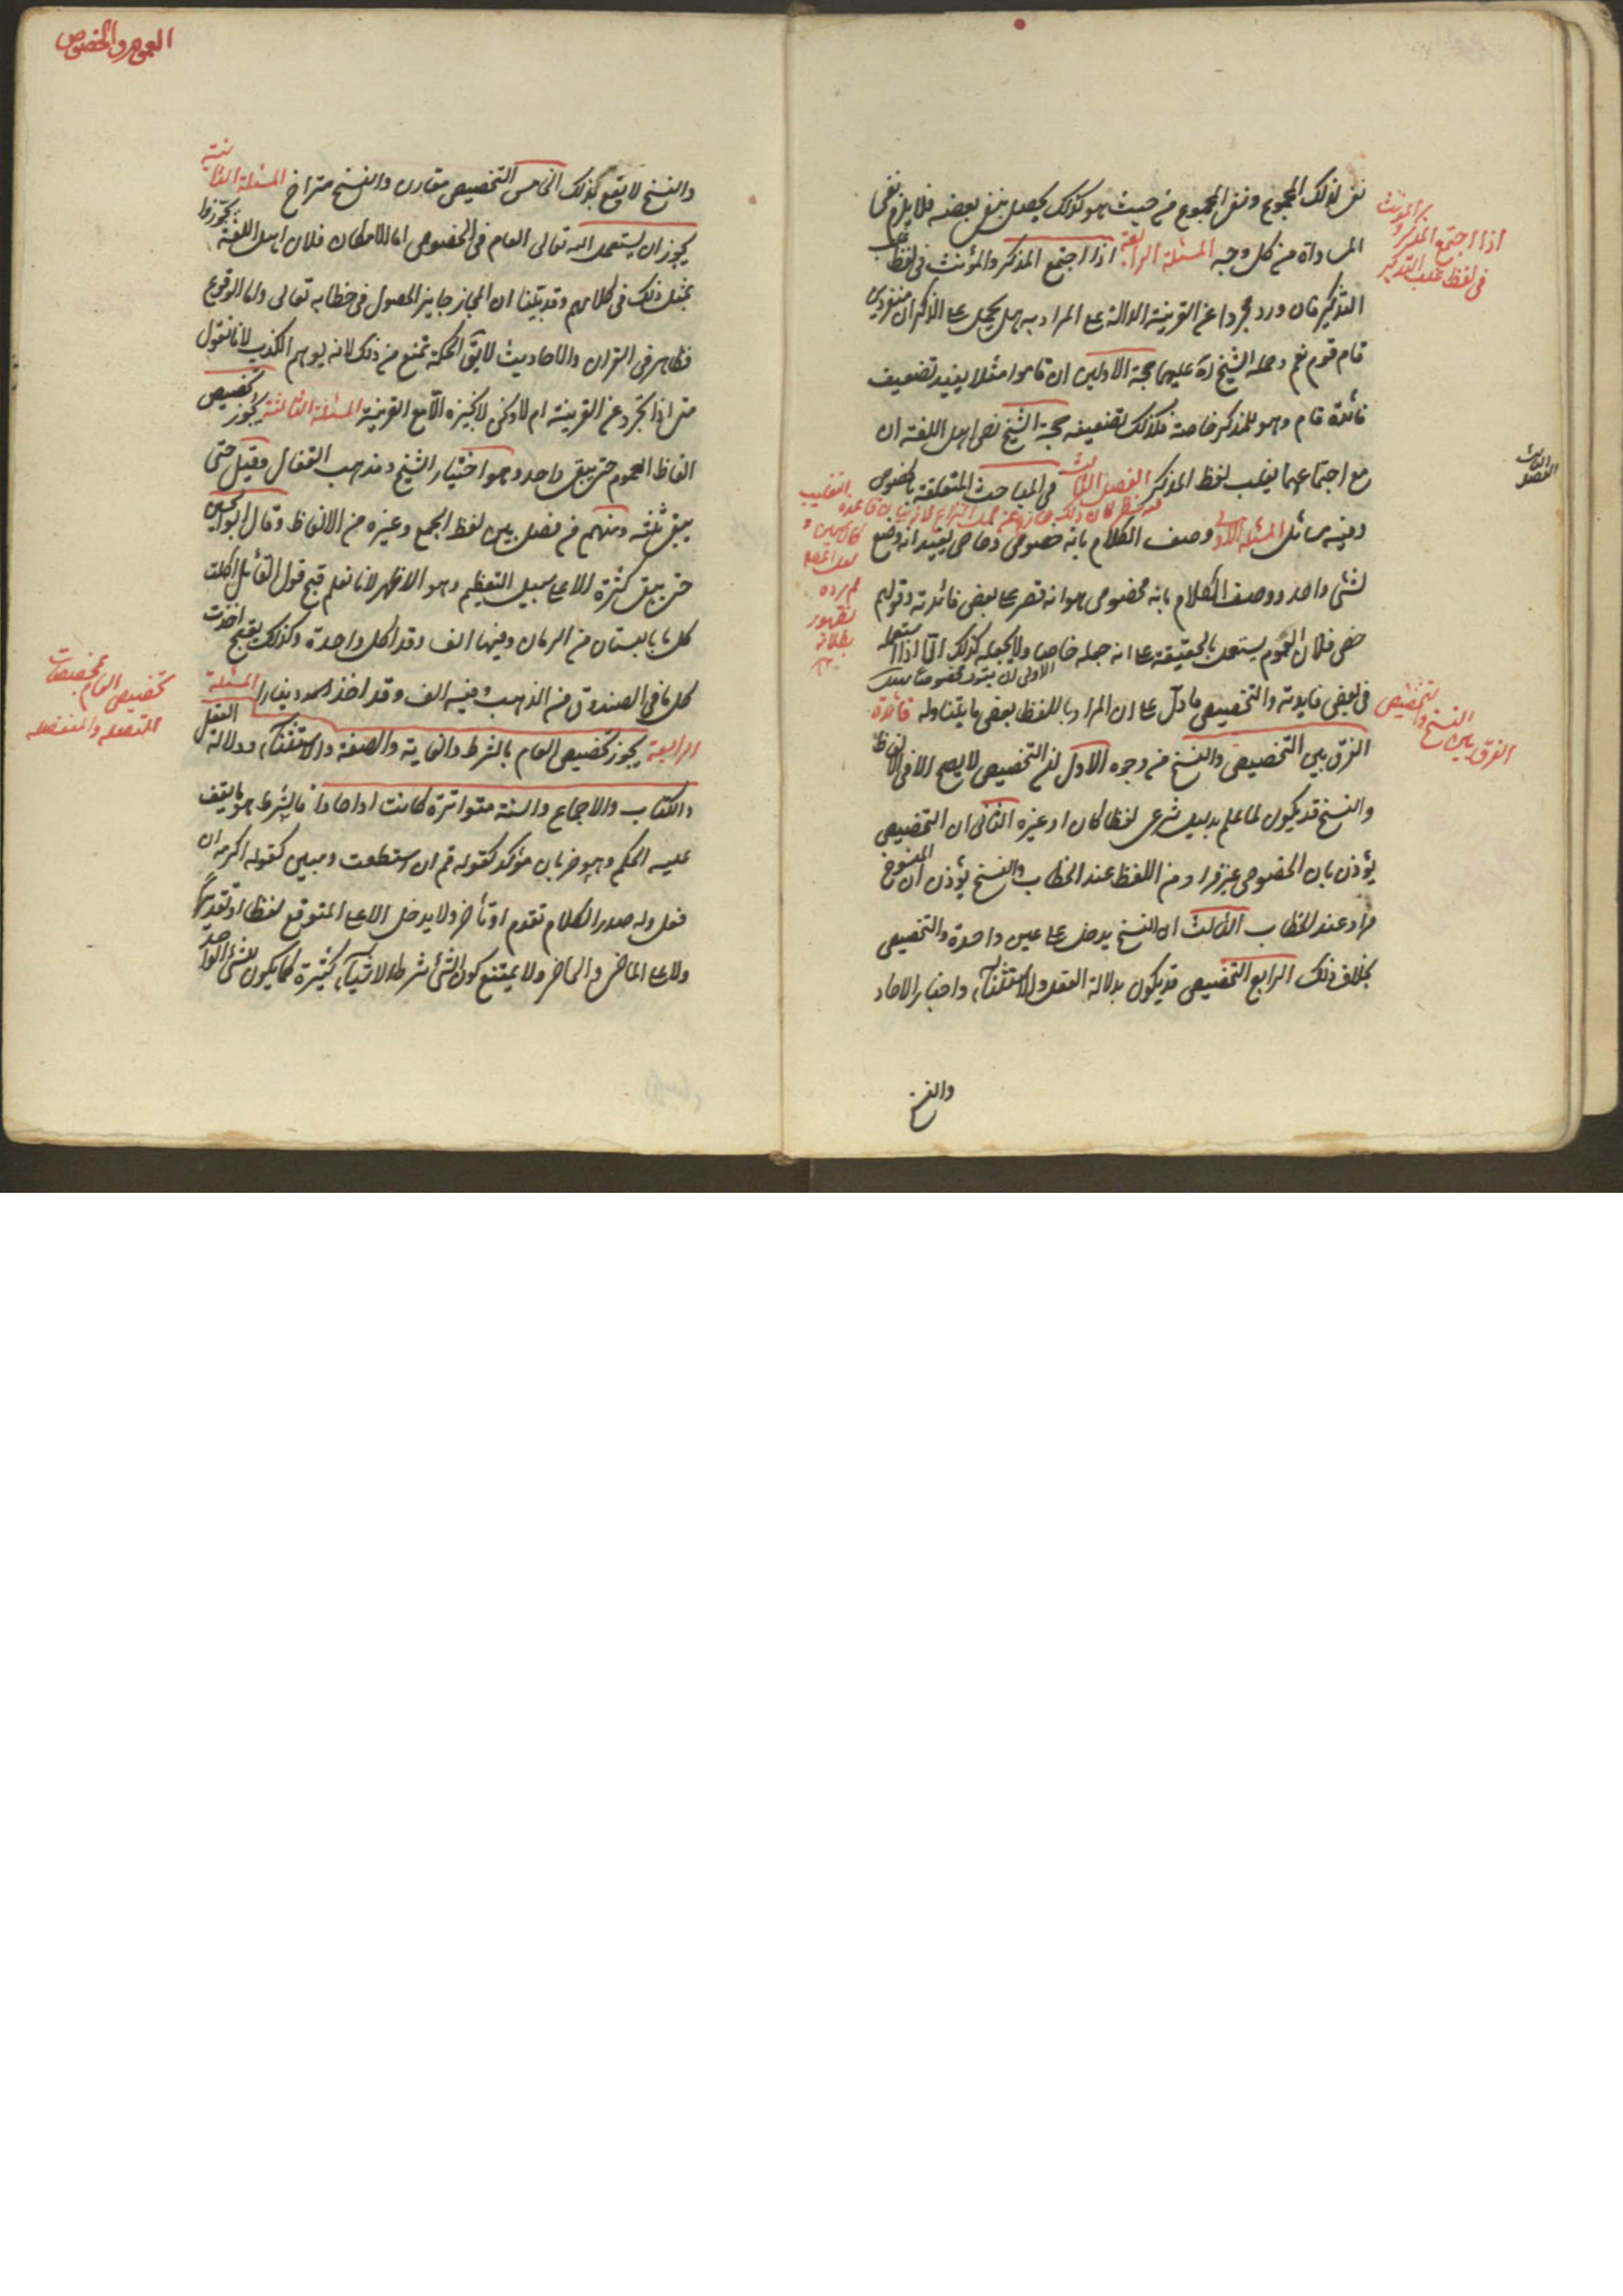 نفى لذلك المجموع ونفى المجموع من حيث هو كذلك يحصل بنفى بعضه فلا يلزم نفى
المساواة من كل وجه المسئلة الرابعة اذا اجتمع المذكر والمؤنث فى لفظ غلب
التذكير فان ورد مجردا عن القرينة الدالة على المراد به هل يحمل على الذكران منفردين
قام قوم نعم وحمله الشيخ ره عليهما حجة الاولين ان قاموا مثلا يفيد تضعيف
فائدة قام وهو للمذكر خاصة فكذلك تضعيفه حجة الشيخ نص اهل اللغة ان
مع اجتماعهما يغلب لفظ المذكر الفصل الثالث فى المباحث المتعلقة بالخصوص
وفيه مسائل المسئلة الاولى وصف الكلام بانه خصوص وخاص يفيد انه وضع
لشئ واحد ووصف الكلام بانه مخصوص هو انه قصر على بعض فائدته وقولهم
خص فلان العموم يستعمل بالحقيقة على انه جعله خاصا ولا يجعله كذلك الا اذا استعمله
فى بعض فايدته والتخصيص ما دل على ان المراد باللفظ بعض ما يتناوله فائدة
الفرق بين التخصيص والنسخ من وجوه الاول ان التخصيص لا يصح الا فى الالفاظ
والنسخ قد يكون لما علم بدليل شرعى لفظا كان او غيره الثانى ان التخصيص
يؤذن بان الخصوص غير مراد من اللفظ عند الخطاب والنسخ يؤذن ان المنسوخ
مراد عند الخطاب الثالث ان النسخ يدخل على عين واحدة والتخصيص
بخلاف ذلك الرابع التخصيص قد يكون بدلالة العقل والاستثناء واخبار الاحاد
والنسخ
اذا اجتمع المذكر والمؤنث
فى لفظ غلب التذكير
الفصل الثالث
الفرق بين النسخ والتخصيص
العموم والخصوص
والنسخ لا يقع كذلك الخامس التخصيص مقارن والنسخ متراخ المسئلة الثانية
يجوز ان يستعمل الله تعالى العام فى الخصوص اما الامكان فلان اهل اللغة تجوزوا
بمثل ذلك فى كلامهم وقد بينا ان المجاز جايز الحصول فى خطابه تعالى واما الوقوع
فظاهر فى القران والاحاديث لا يق الحكمة تمنع من ذلك لانه يوهم الكذب لانا نقول
متى اذا تجرد عن القرينة ام لا ونحن لا نجيزه الا مع القرينة المسئلة الثالثة يجوز تخصيص
الفاظ العموم حتى يبقى واحد وهو اختيار الشيخ ومذهب القفال وقيل حتى
يبقى ثلثة ومنهم من فصل بين لفظ الجمع وغيره من الالفاظ وقال ابو الحسين
حتى يبقى كثرة الا على سبيل التعظيم وهو الاظهر لانا نعلم قبح قول القائل اكلت
كل ما بالبستان من الرمان وفيها الف وقد اكل واحدة وكذلك يقبح اخذت
كل ما فى الصندوق من الذهب وفيه الف وقد اخذ دينارا المسئلة
الرابعة يجوز تخصيص العام بالشرط والغاية والصفة والاستثناء ودلالة العقل
والكتاب والاجماع والسنة متواترة كانت او احادا فالشرط هو ما يقف
عليه الحكم وهو ضربان مؤكد كقوله قم ان استطعت ومبين كقوله اكرمه ان
فعل وله صدر الكلام تقدم او تأخر ولا يدخل الا على المتوقع لفظا او تقديرا
ولا على الماضى والحاضر ولا يمتنع كون الشئ شرطا لاشياء كثيرة كما يكون للشئ الواحد
تخصيص العام بمخصصات
المتصله والمنفصله